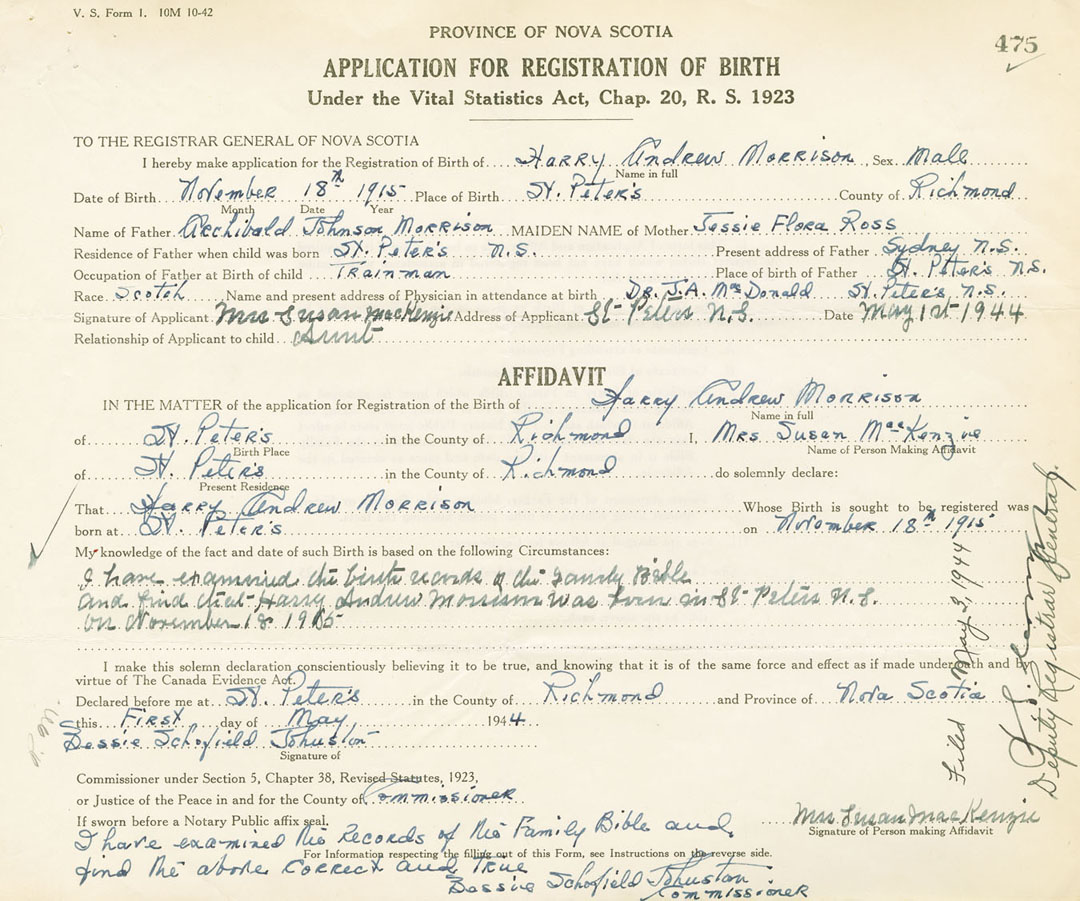 V. S. Form 1. 10M 10-42
PROVINCE OF NOVA SCOTIA
475
APPLICATION FOR REGISTRATION OF BIRTH
Under the Vital Statistics Act, Chap. 20, R. S. 1923
TO THE REGISTRAR GENERAL OF NOVA SCOTIA
I hereby make application for the Registration of Birth of Harry Andrew Morrison Sex Male
Name in full
Date of Birth November 18th 1915 Place of Birth St. Peter's County of Richmond
Month Date Year
Name of Father Archibald Johnson Morrison MAIDEN NAME of Mother Jessie Flora Ross
Residence of Father when child was born St. Peter's N.S. Present address of Father Sydney N.S.
Occupation of Father at Birth of child Trainman Place of birth of Father St. Peter's N.S.
Race Scotch Name and present address of Physician in attendance at birth Dr. J.A. MacDonald St. Peter's N.S.
Signature of Applicant Mrs Susan MacKenzie Address of Applicant St Peters N.S. Date May 1st 1944
Relationship of Applicant to child Aunt
AFFIDAVIT
IN THE MATTER of the application for Registration of the Birth of Harry Andrew Morrison
Name in full
of St. Peter's in the County of Richmond I, Mrs Susan MacKenzie
Birth Place Name of Person Making Affidavit
of St. Peter's in the County of Richmond do solemnly declare:
Present Residence
That Harry Andrew Morrison Whose Birth is sought to be registered was
born at St. Peter's on November 18th 1915
My knowledge of the fact and date of such Birth is based on the following Circumstances:
I have examined the birth records of the Family Bible
and find that Harry Andrew Morrison was born in St Peters N.S.
on November 18 1915
I make this solemn declaration conscientiously believing it to be true, and knowing that it is of the same force and effect as if made under oath and by
virtue of The Canada Evidence Act.
Declared before me at St. Peter's in the County of Richmond and Province of Nova Scotia
this First day of May, 1944
Bessie Schofield Johnston
Signature of
Commissioner under Section 5, Chapter 38, Revised Statutes, 1923,
or Justice of the Peace in and for the County of Commissioner
If sworn before a Notary Public affix seal.
Mrs. Susan MacKenzie
Signature of Person making Affidavit
I have examined the Records of the Family Bible and
For Information respecting the filling out of this Form, see Instructions on the reverse side.
find the above correct and true
Bessie Schofield Johnston
Commissioner
Filed May 3, 1944
Deputy Registrar General